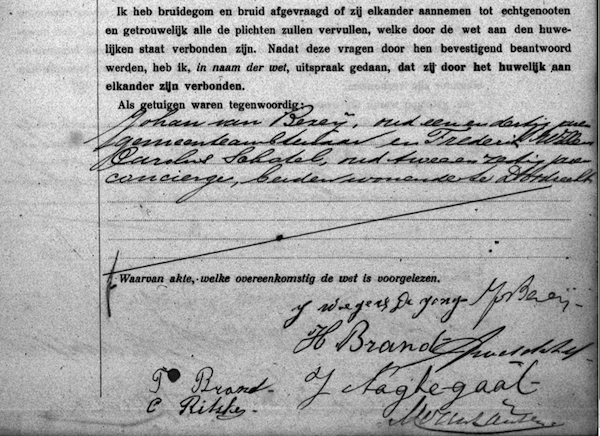 Ik heb bruidegom en bruid afgevraagd of zij elkander aannemen tot echtgenooten
en getrouwelijk alle de plichten zullen vervullen, welke door de wet aan den huwe-
lijken staat verbonden zijn. Nadat deze vragen door hen bevestigend beantwoord
werden, heb ik, in naam der wet, uitspraak gedaan, dat zij door het huwelijk aan
elkander zijn verbonden.
Als getuigen waren tegenwoordig:
Johan van Bereij, oud een en dertig
gemeenteambtenaar en Frederik Willem
Carolus Schotel, oud twee en zestig
concierge, beiden wonende te Dordrecht
Waarvan akte, welke overeenkomstig de wet is voorgelezen.
J Wegers de Jong JvBereij
H Brand
T Brand J Nagtegaal
C Ritskes